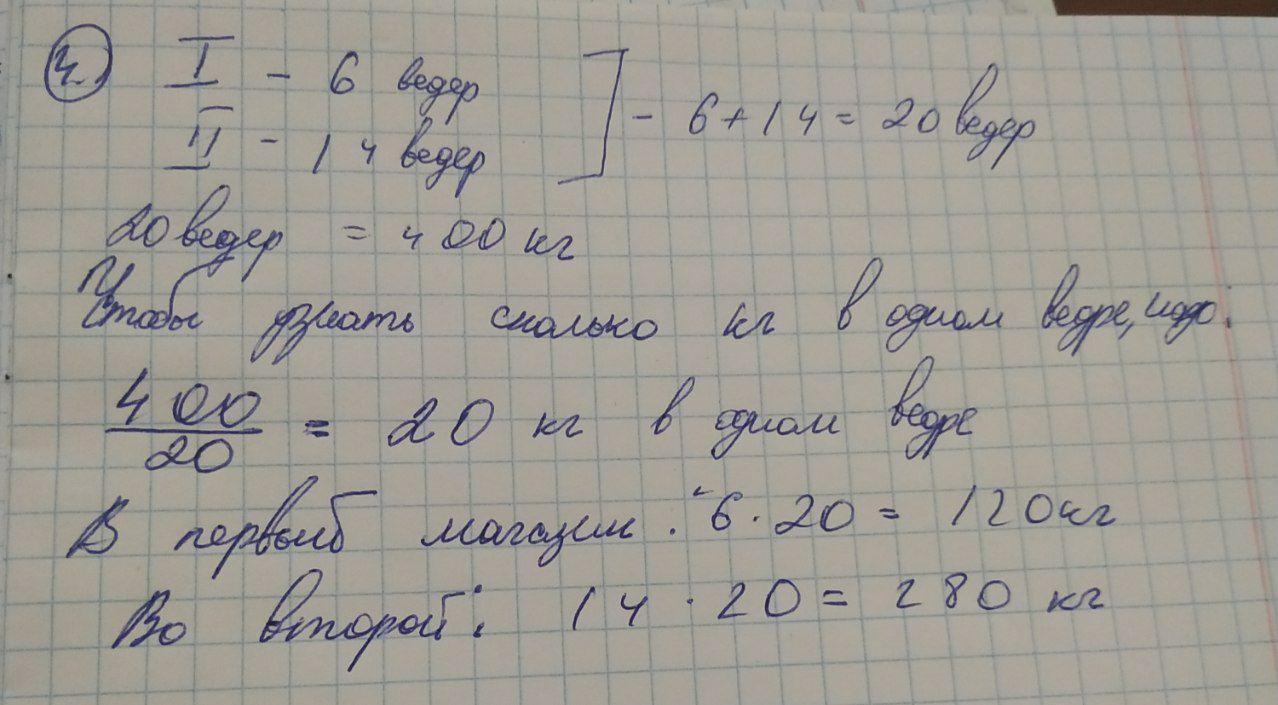 4.
I - 6 ведер
II - 14 ведер
] - 6 + 14 = 20 ведер
20 ведер = 400 кг
Чтобы узнать сколько кг в одном ведре, надо:
400/20 = 20 кг в одном ведре
В первый магазин: 6 · 20 = 120 кг
Во второй: 14 · 20 = 280 кг